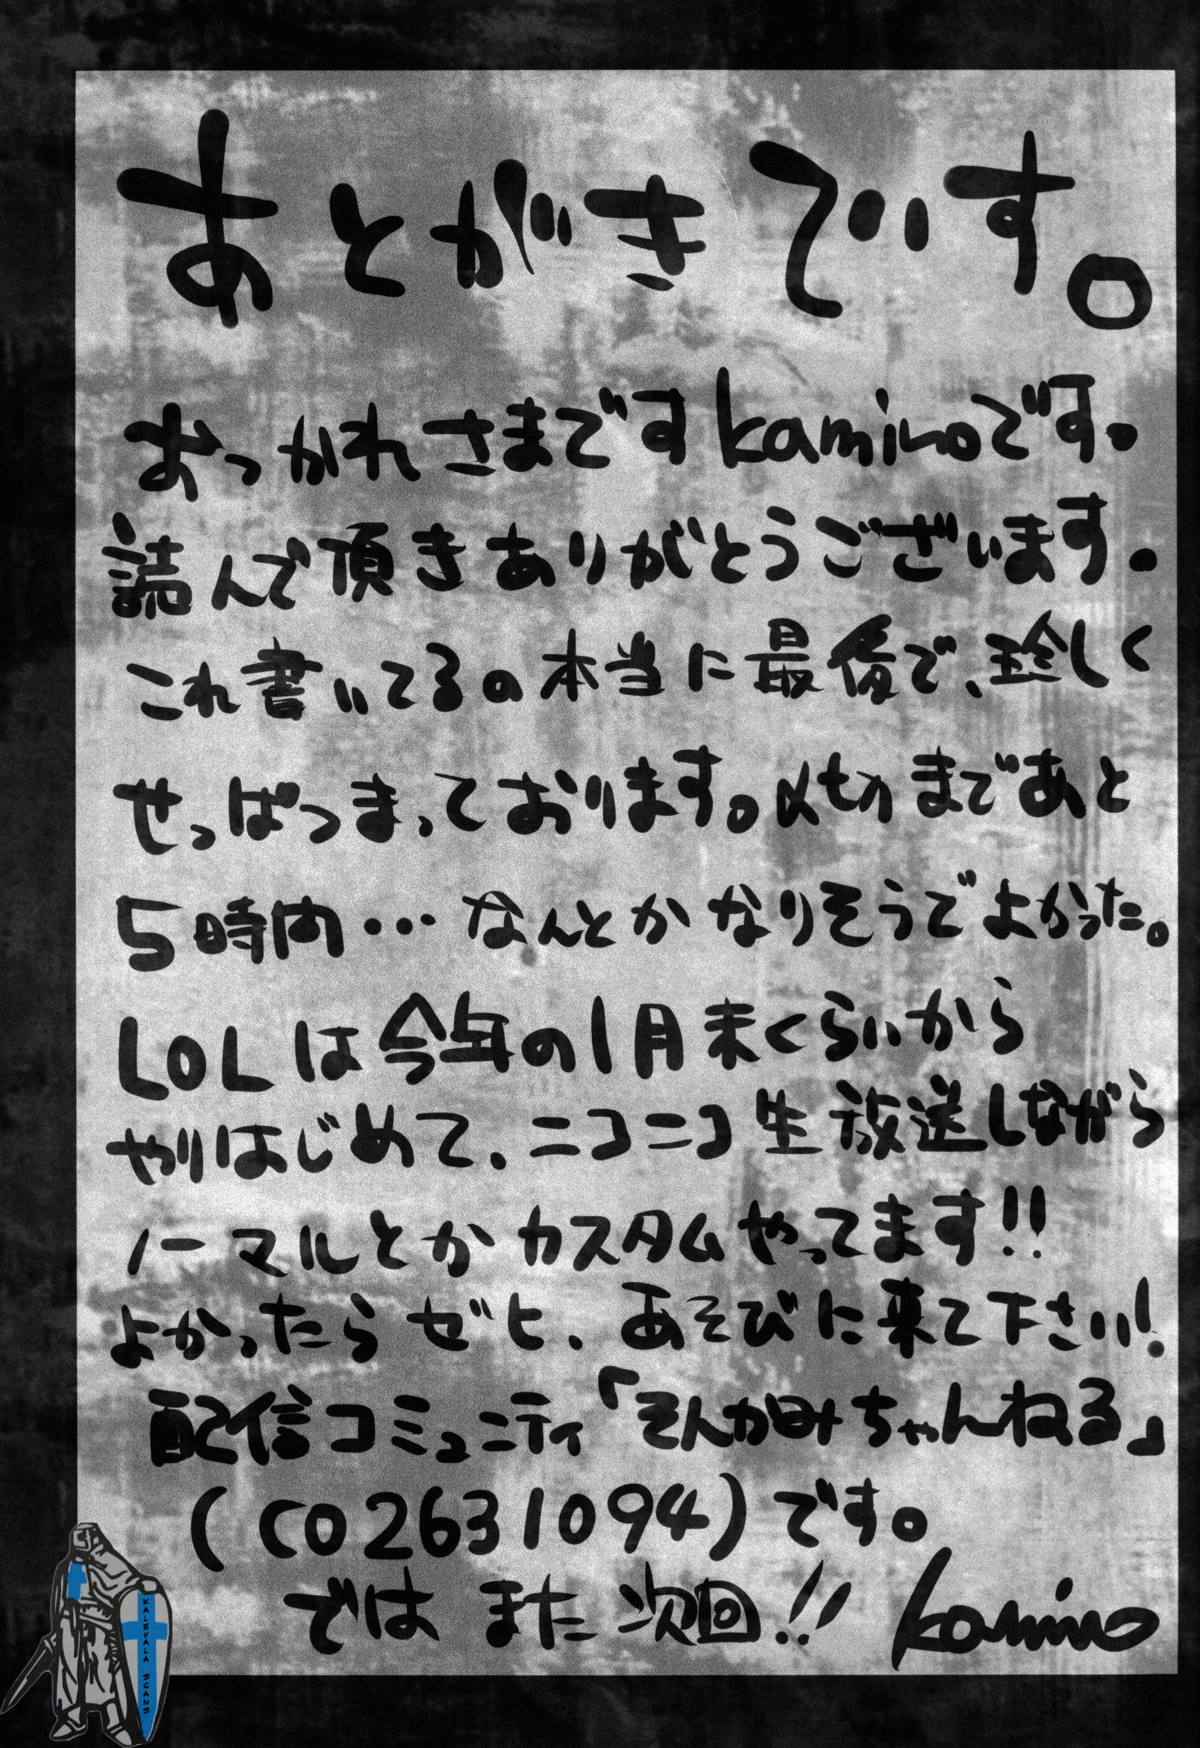 あとがきでいす。
おっかれさまです kaminoです。
読んで頂きありがとうございます。
これ書いてるの本当に最後で、珍しく
せっぱつまっております。〆切まであと
5時間・・・なんとかなりそうでよかった。
LOLは今年の1月末くらいから
やりはじめて、ニコニコ生放送しながら
ノーマルとかカスタムやってます!!
よかったらゼヒ、あそびに来て下さい!
配信コミュニティ「そんかみちゃんねる」
(CO2631094)です。
ではまた次回!! kamino
KALEVALA SCANS